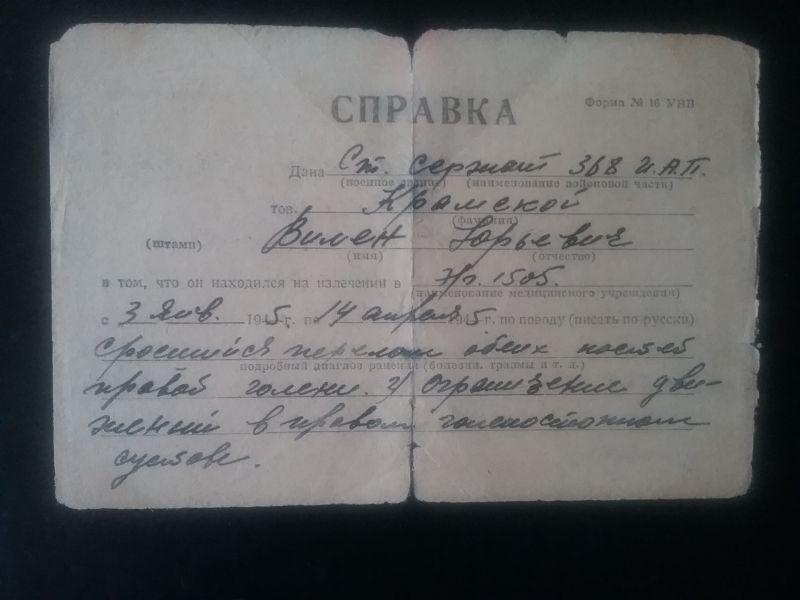 СПРАВКА
Форма № 16 УНВ
Дана Ст. сержант 368 И.А.П.
(военное звание) (наименование войсковой части)
тов. Крамской
(фамилия)
(штамп) Вилен Юрьевич
(имя) (отчество)
в том, что он находился на излечении в Эг. 1505.
(наименование медицинского учреждения)
с 3 Янв. 1945 г. по 14 апреля 1945 г. по поводу (писать по-русски)
сросшийся перелом обеих костей
подробный диагноз ранения (болезни, травмы и т. д.)
правой голени. 2) Ограничение дви-
жений в правом голеностопном
суставе.